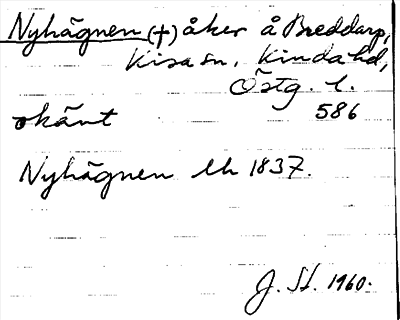 Nyhägnen (+) åker å Breddarp,
Kisa sn, Kinda hd,
Östg. l.
okänt 586
Nyhägnen lh 1837.
J. St. 1960.